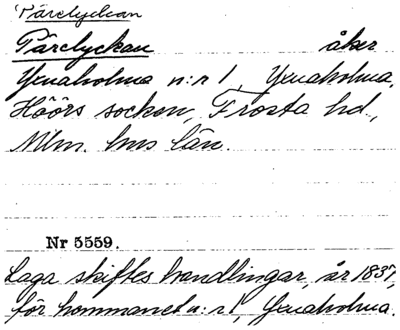 Pärelyckan
Pärelyckan åker
Yxnaholma n:r 1, Yxnaholma,
Höörs socken, Frosta hd.,
Mlm. hus län.
Nr 5559.
Laga skiftes handlingar, år 1837,
för hemmanet n:r 1, Yxnaholma.